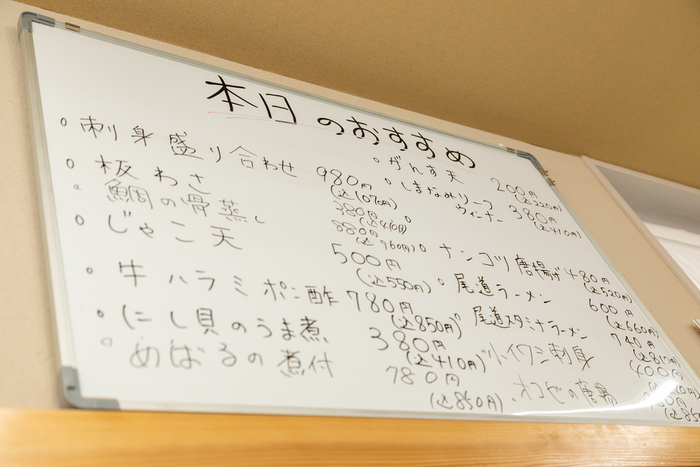 本日のおすすめ
刺身盛り合わせ 980円
(込1070円)
板わさ 380円
(込410円)
鯛の骨蒸し 880円
(込960円)
じゃこ天 500円
(込550円)
牛ハラミポン酢 780円
(込850円)
にし貝のうま煮 380円
(込410円)
めばるの煮付 780円
(込850円)
がんす天 200円
(込220円)
しまなみリーフ
ウィンナー 380円
(込410円)
ナンコツ唐揚げ 480円
(込520円)
尾道ラーメン 600円
(込660円)
尾道スタミナラーメン 740円
小イワシ刺身 400円
オコゼの唐揚